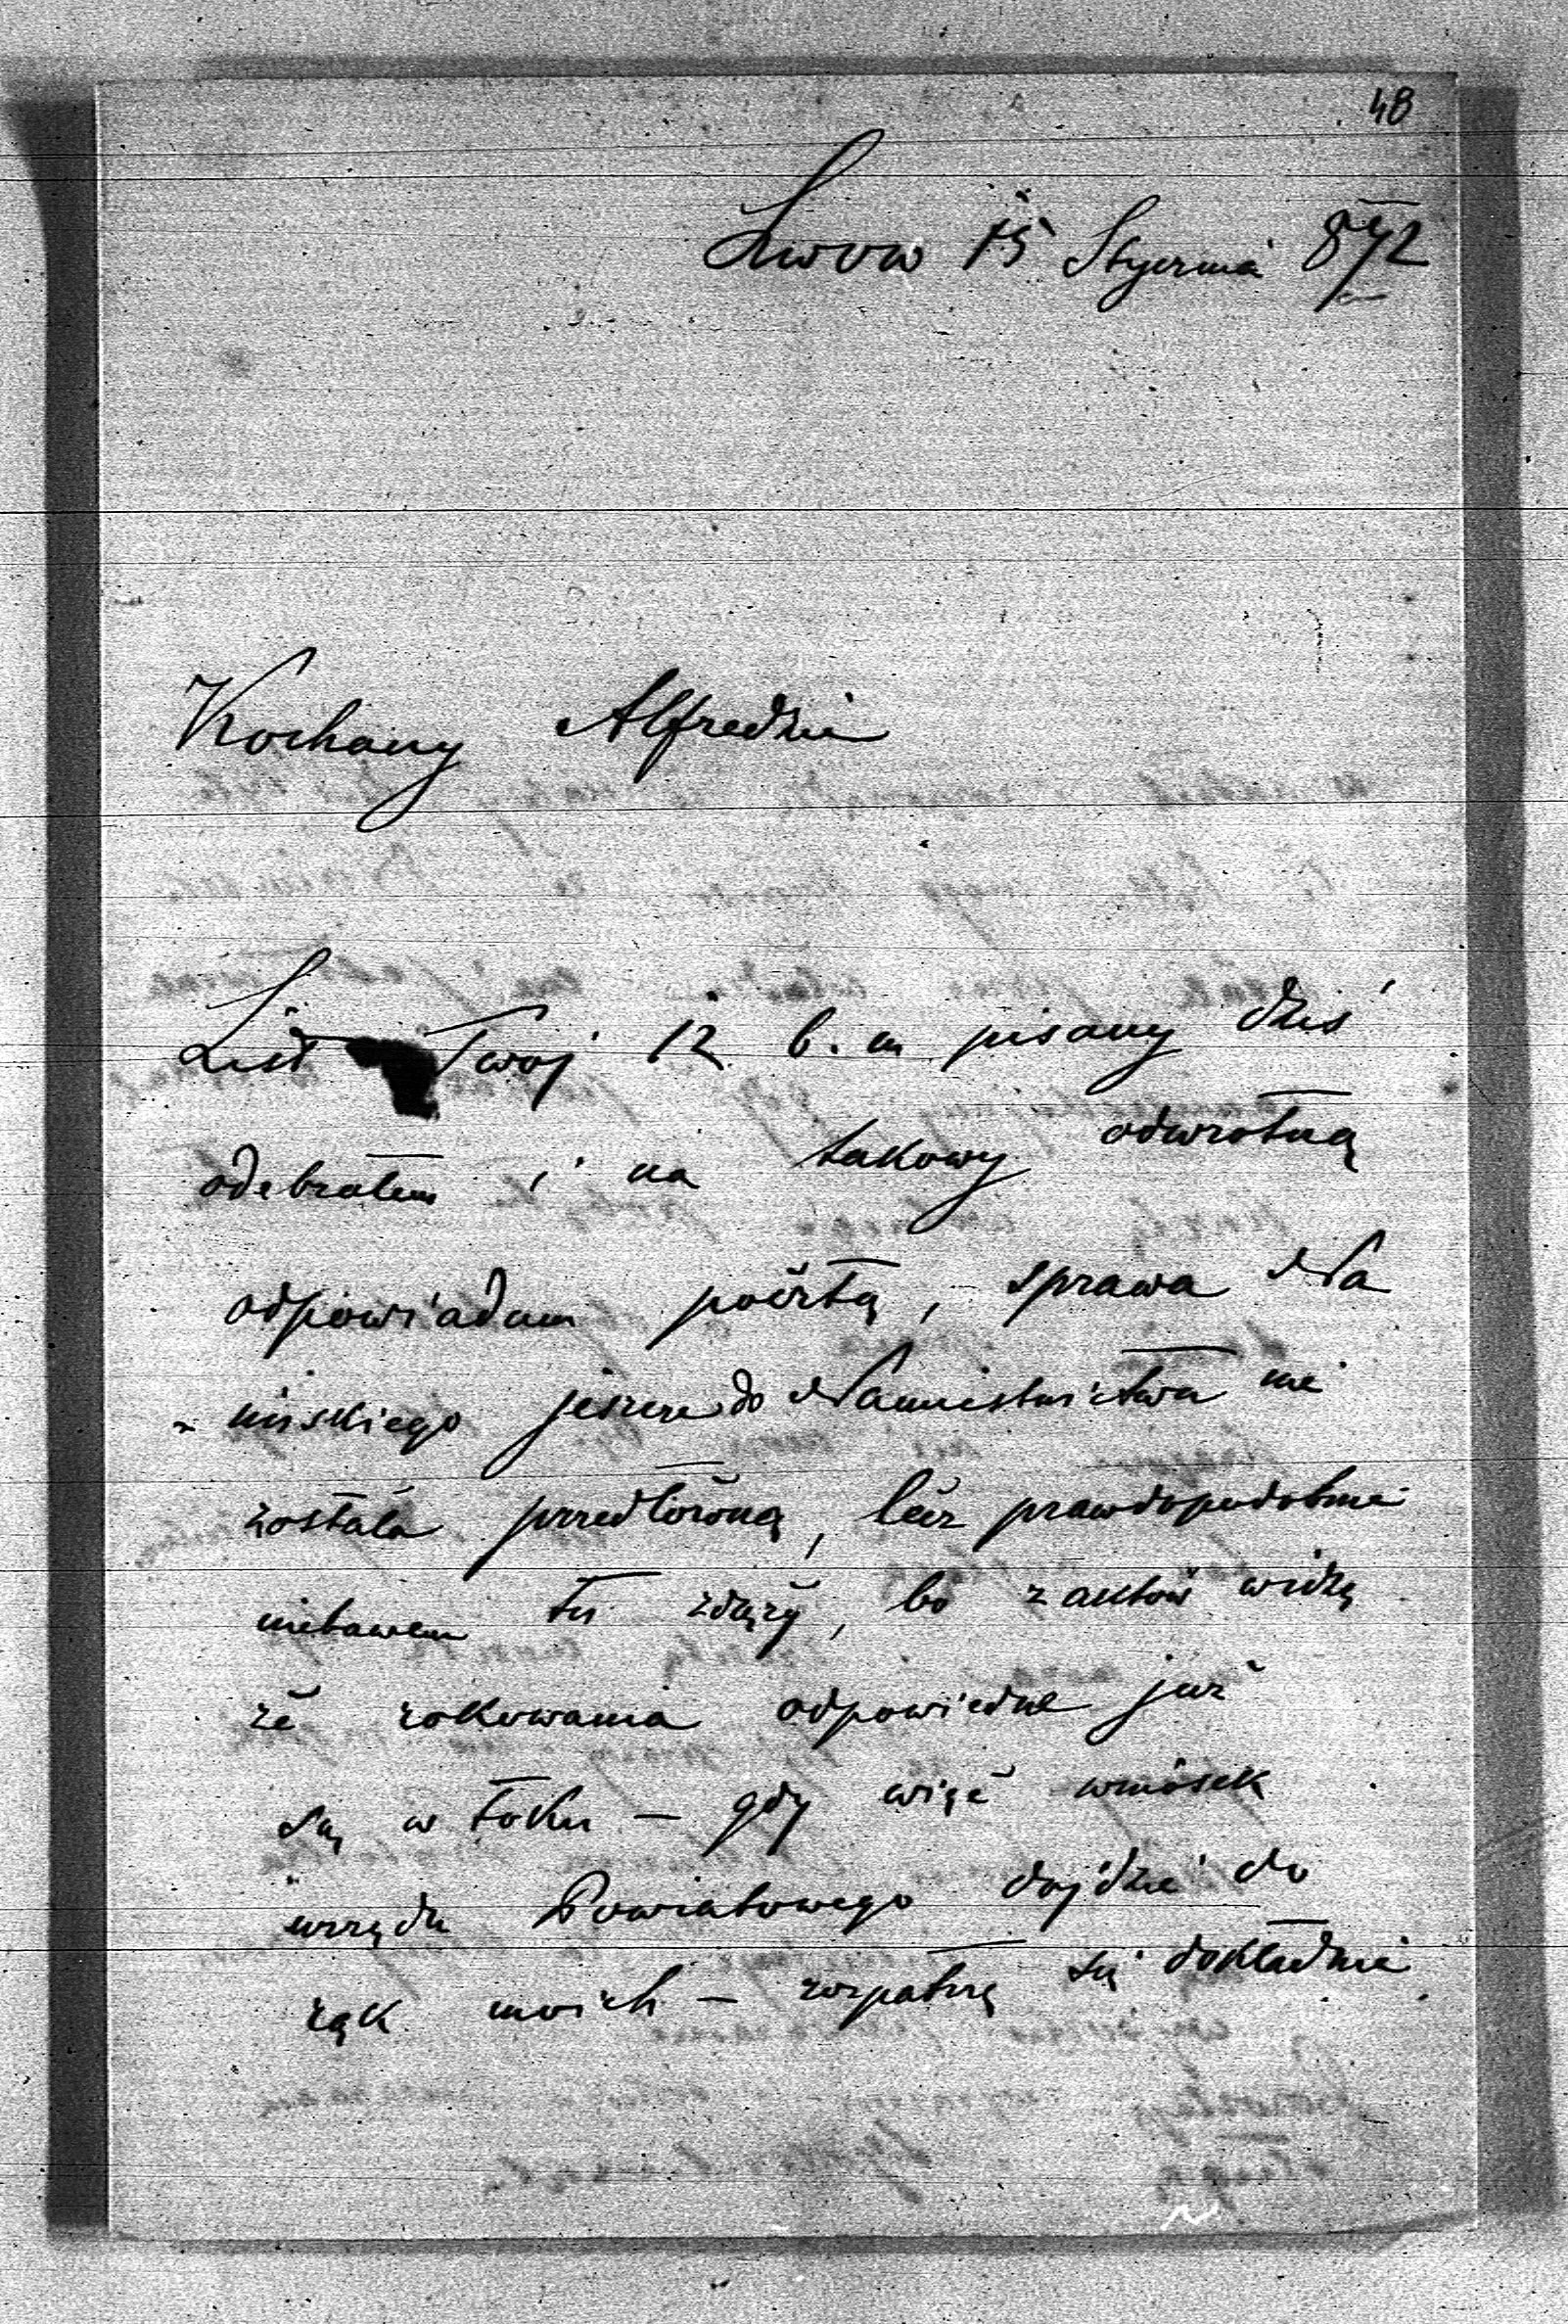 48
Lwow 15 Stycznia 872
Kochany Alfredzie
List Twoj 12 b. m pisany dziś
odebrałem i na takowy odwrotną
odpowiadam pocztą, sprawa Na
- nińskiego jeszcze do Namiestnictwa nie
została przedłożoną, lécz prawdopodobnie
niebawem tu zdąży, bo z aktów widzę
że rokowania odpowiedne już
są w toku — gdy więc wniosek
urzędu Powiatowego dojdzie do
rąk moich — rozpatrzę się dokładnie